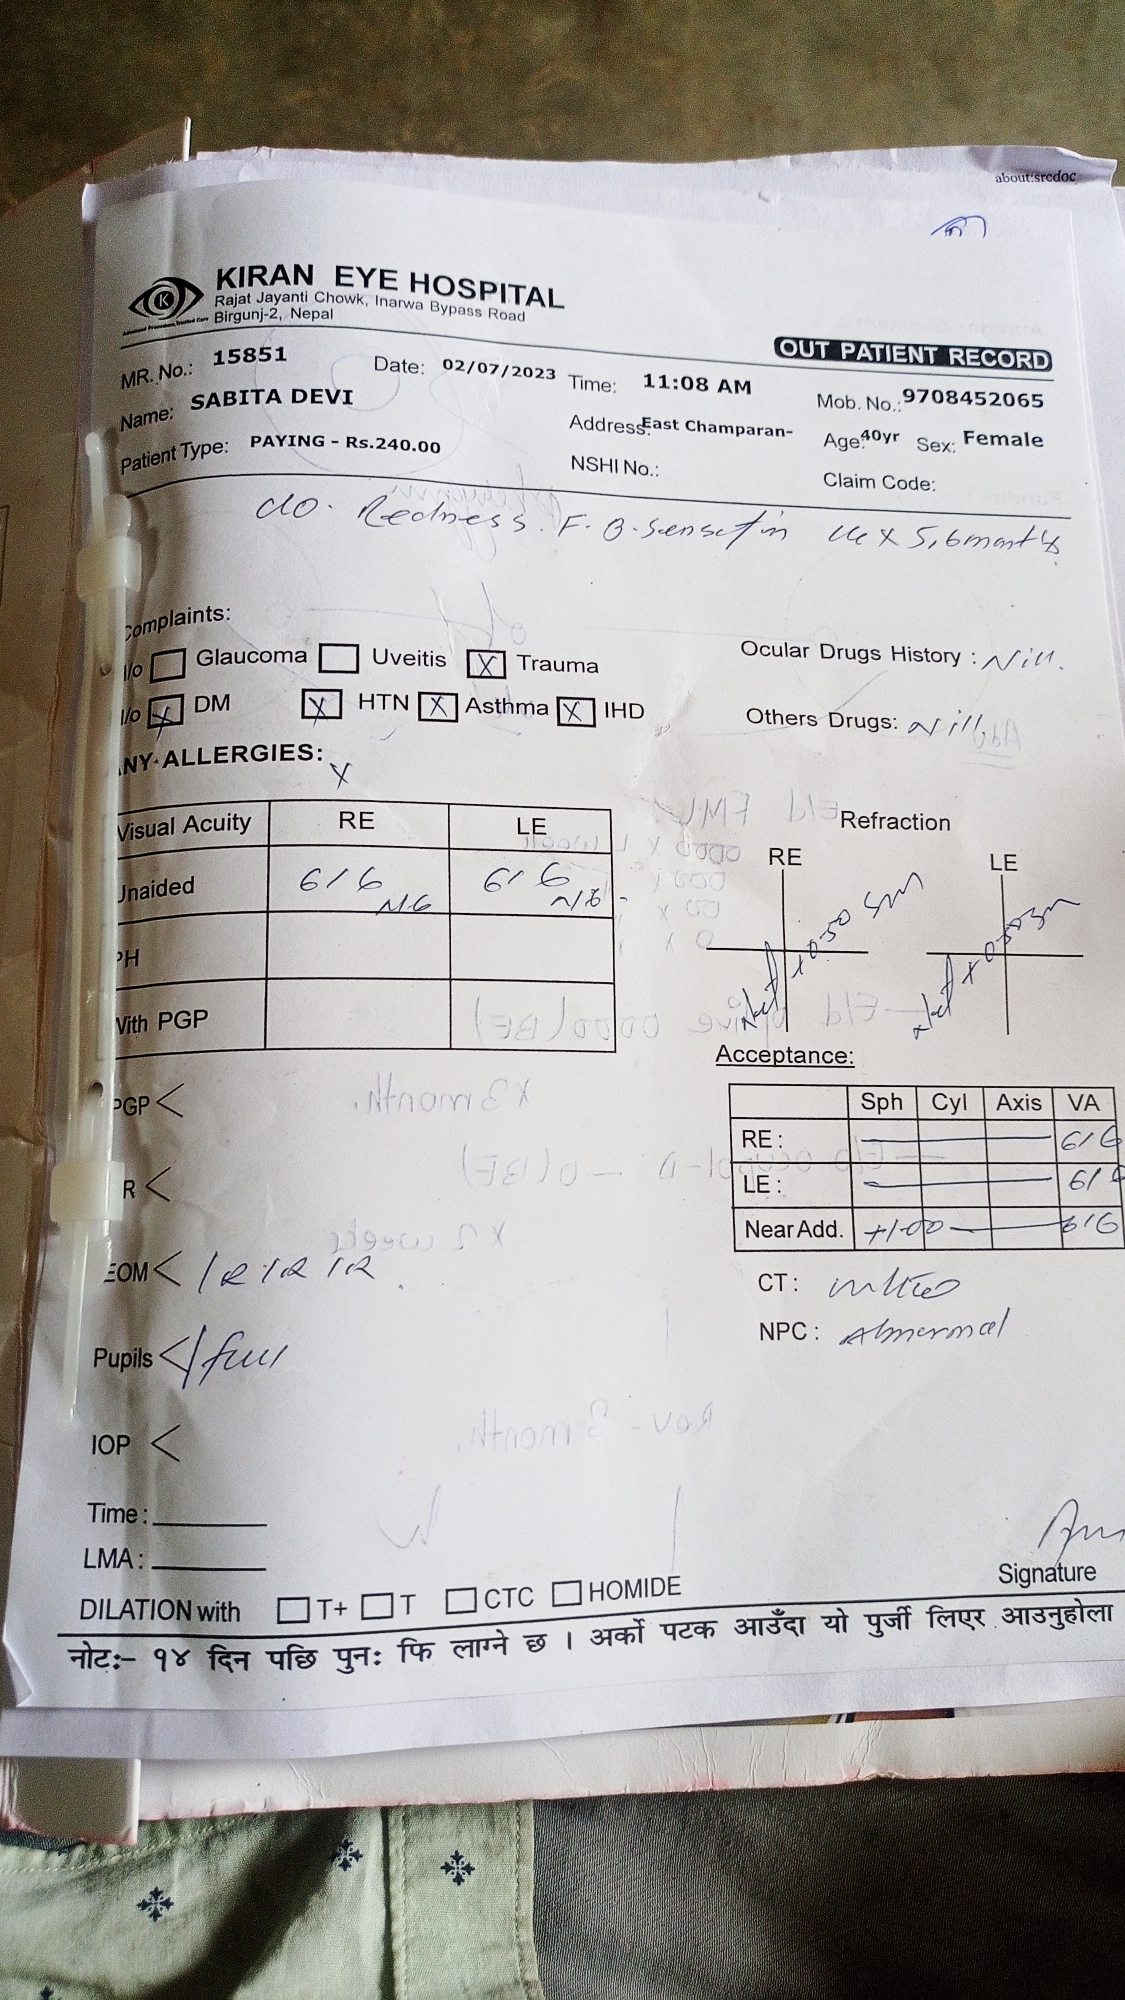 about:srcdoc
KIRAN EYE HOSPITAL
Rajat Jayanti Chowk, Inarwa Bypass Road
Birgunj-2, Nepal
OUT PATIENT RECORD
MR. No.: 15851 Date: 02/07/2023 Time: 11:08 AM Mob. No.: 9708452065
Name: SABITA DEVI Address: East Champaran- Age: 40yr Sex: Female
Patient Type: PAYING - Rs.240.00 NSHI No.: Claim Code:
c/o. Redness. F.B. x 5,6 month
omplaints:
/o Glaucoma Uveitis X Trauma Ocular Drugs History : Nill.
/o X DM X HTN X Asthma X IHD Others Drugs: Nill
NY ALLERGIES: X
Visual Acuity RE LE Refraction
Unaided 6/6 N6 6/6 N6 RE LE
PH +0.50
With PGP
Acceptance:
PGP <
Sph Cyl Axis VA
RE : 6/6
LE : 6/6
Near Add. +1.00
R <
EOM <
CT :
NPC : Abnormal
Pupils < full
IOP <
Time :
LMA :
Signature
DILATION with T+ T CTC HOMIDE
नोटः- १४ दिन पछि पुनः फि लाग्ने छ । अर्को पटक आउँदा यो पुर्जी लिएर आउनुहोला